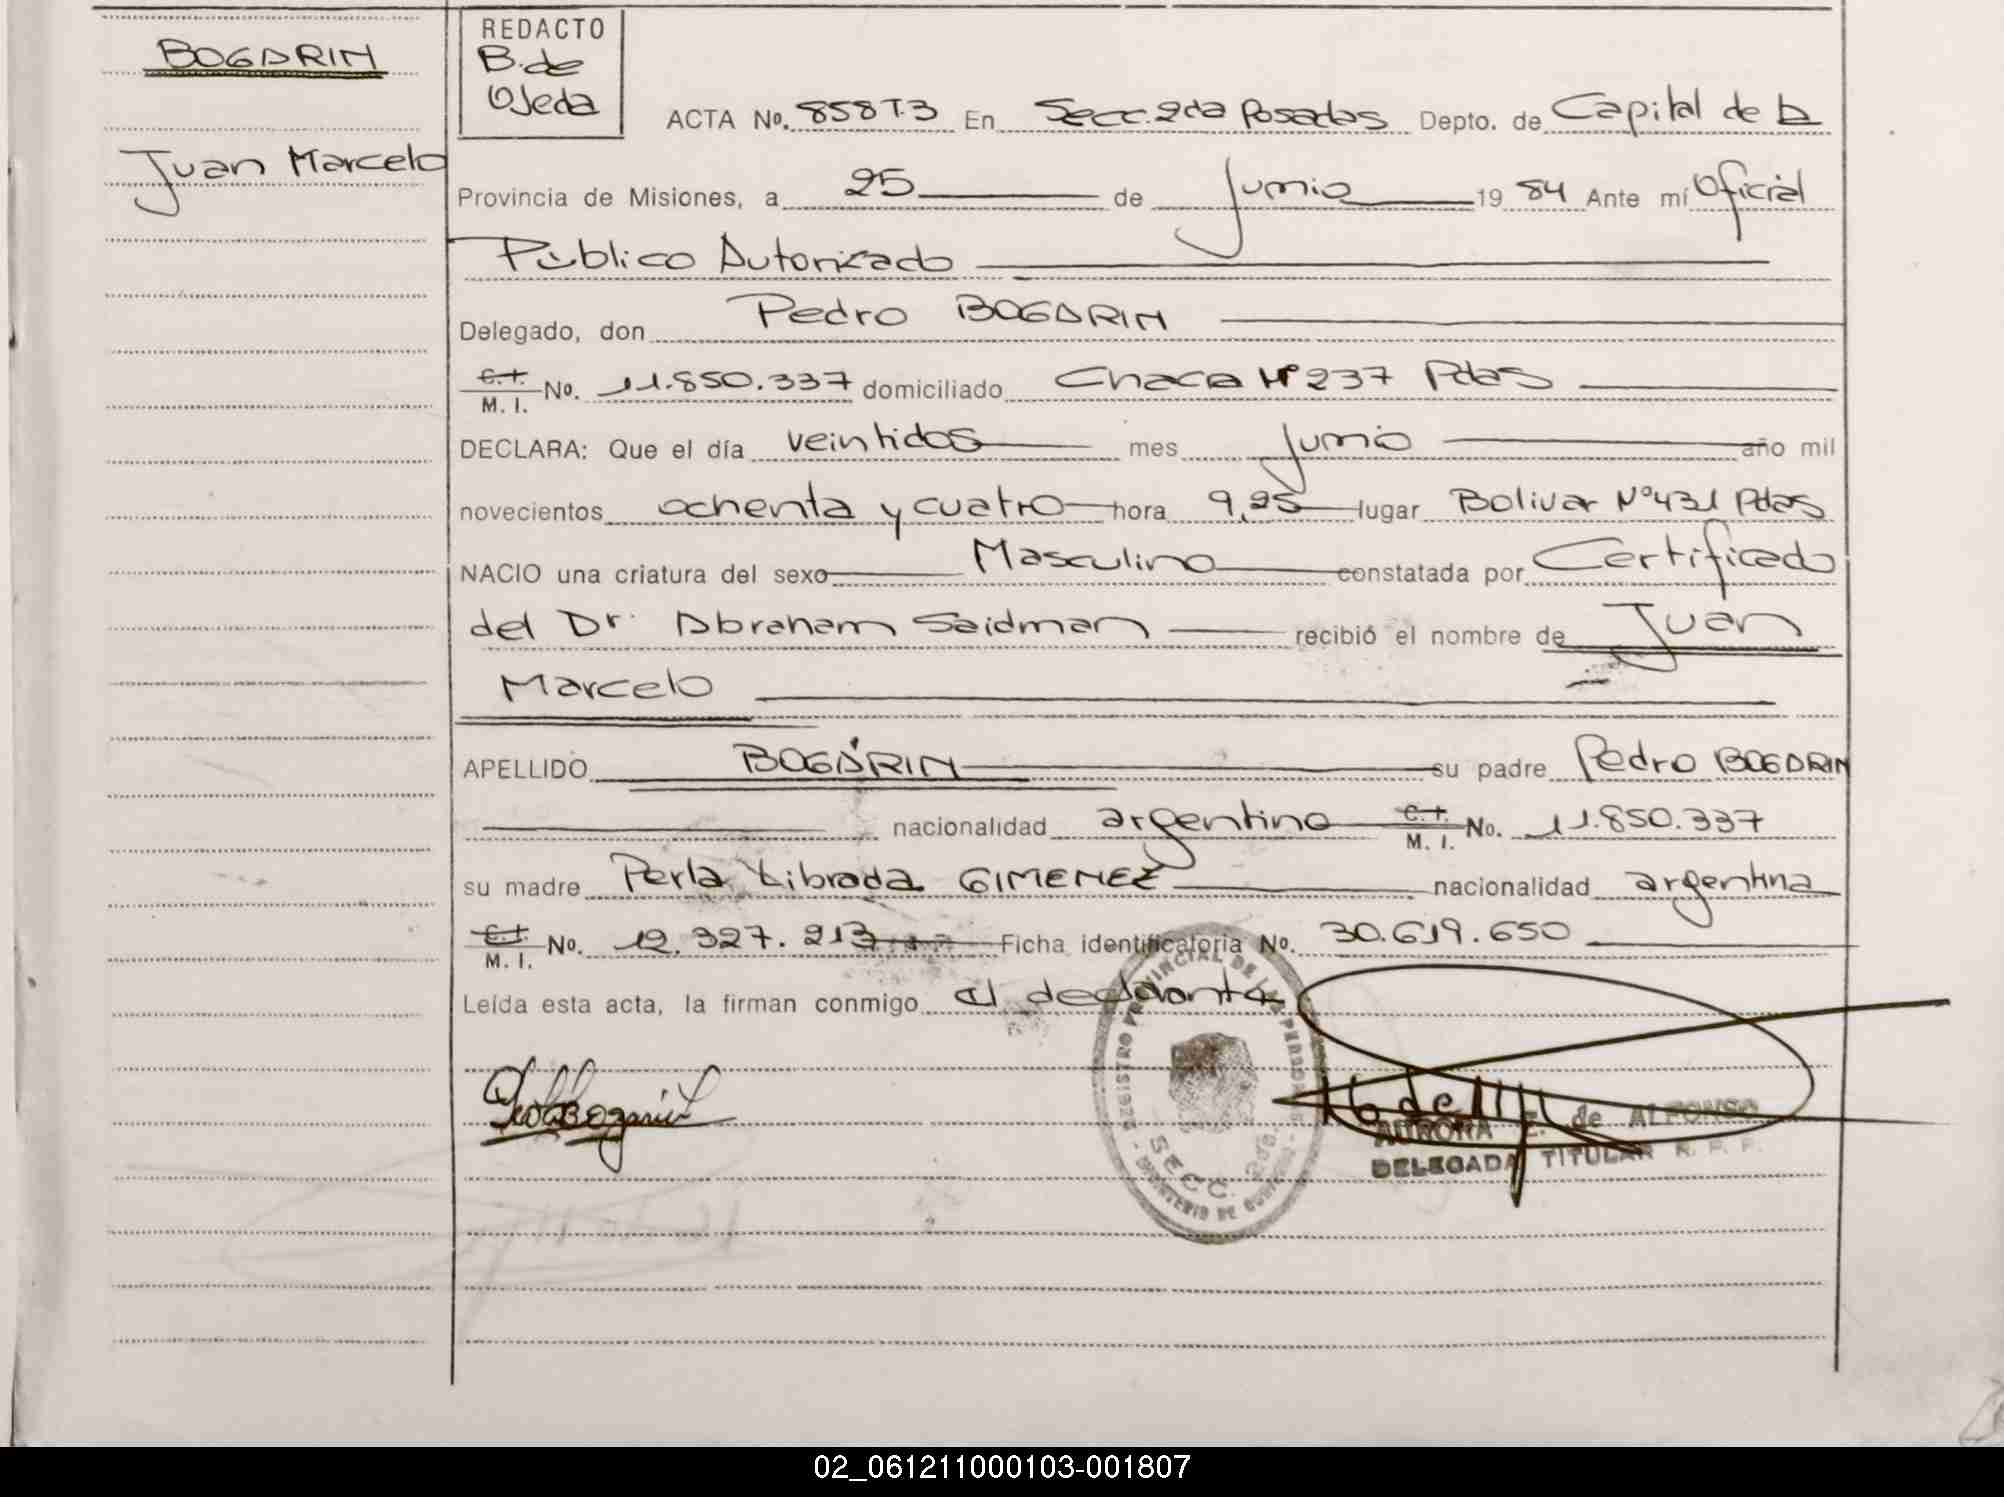 BOGARIN
Juan Marcelo
REDACTO
B. de
Ojeda
ACTA No. 858T.3 En Secc. 2da Posadas Depto. de Capital de la
Provincia de Misiones, a 25 de Junio 1984 Ante mí Oficial
Público Autorizado
Delegado, don Pedro BOGARIN
C.I. M. I. No. 11.850.337 domiciliado Chacra Nº 237 Pdas
DECLARA: Que el día veintidos mes Junio año mil
novecientos ochenta y cuatro hora 9,25 lugar Bolivar Nº 431 Pdas
NACIO una criatura del sexo Masculino constatada por Certificado
del Dr. Abraham Saidman recibió el nombre de Juan
Marcelo
APELLIDO BOGARIN su padre Pedro BOGARIN
nacionalidad argentino C.I. M. I. No. 11.850.337
su madre Perla Librada GIMENEZ nacionalidad argentina
C.I. M. I. No. 12.327.213 Ficha identificatoria No. 30.619.650
Leída esta acta, la firman conmigo el declarante
REGISTRO PROVINCIAL DE LAS PERSONAS
SECC. 2da.
MINISTERIO DE GOBIERNO
AURORA E. de ALFONSO
DELEGADA TITULAR R. P. P.
02_061211000103-001807